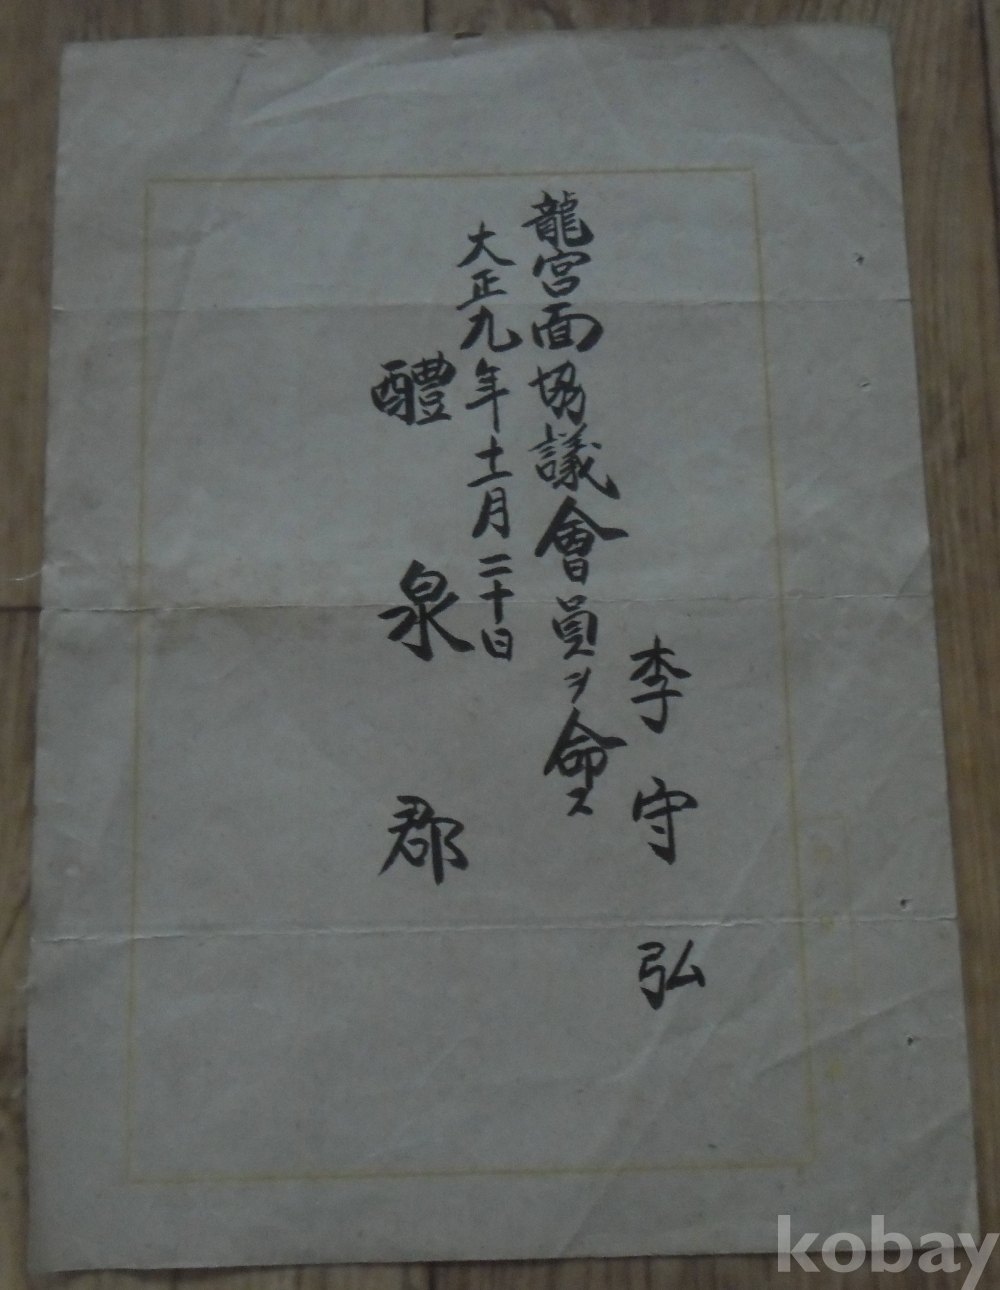 李守弘
龍宮面協議會員ヲ命ス
大正九年十一月二十日
醴泉郡
kobay